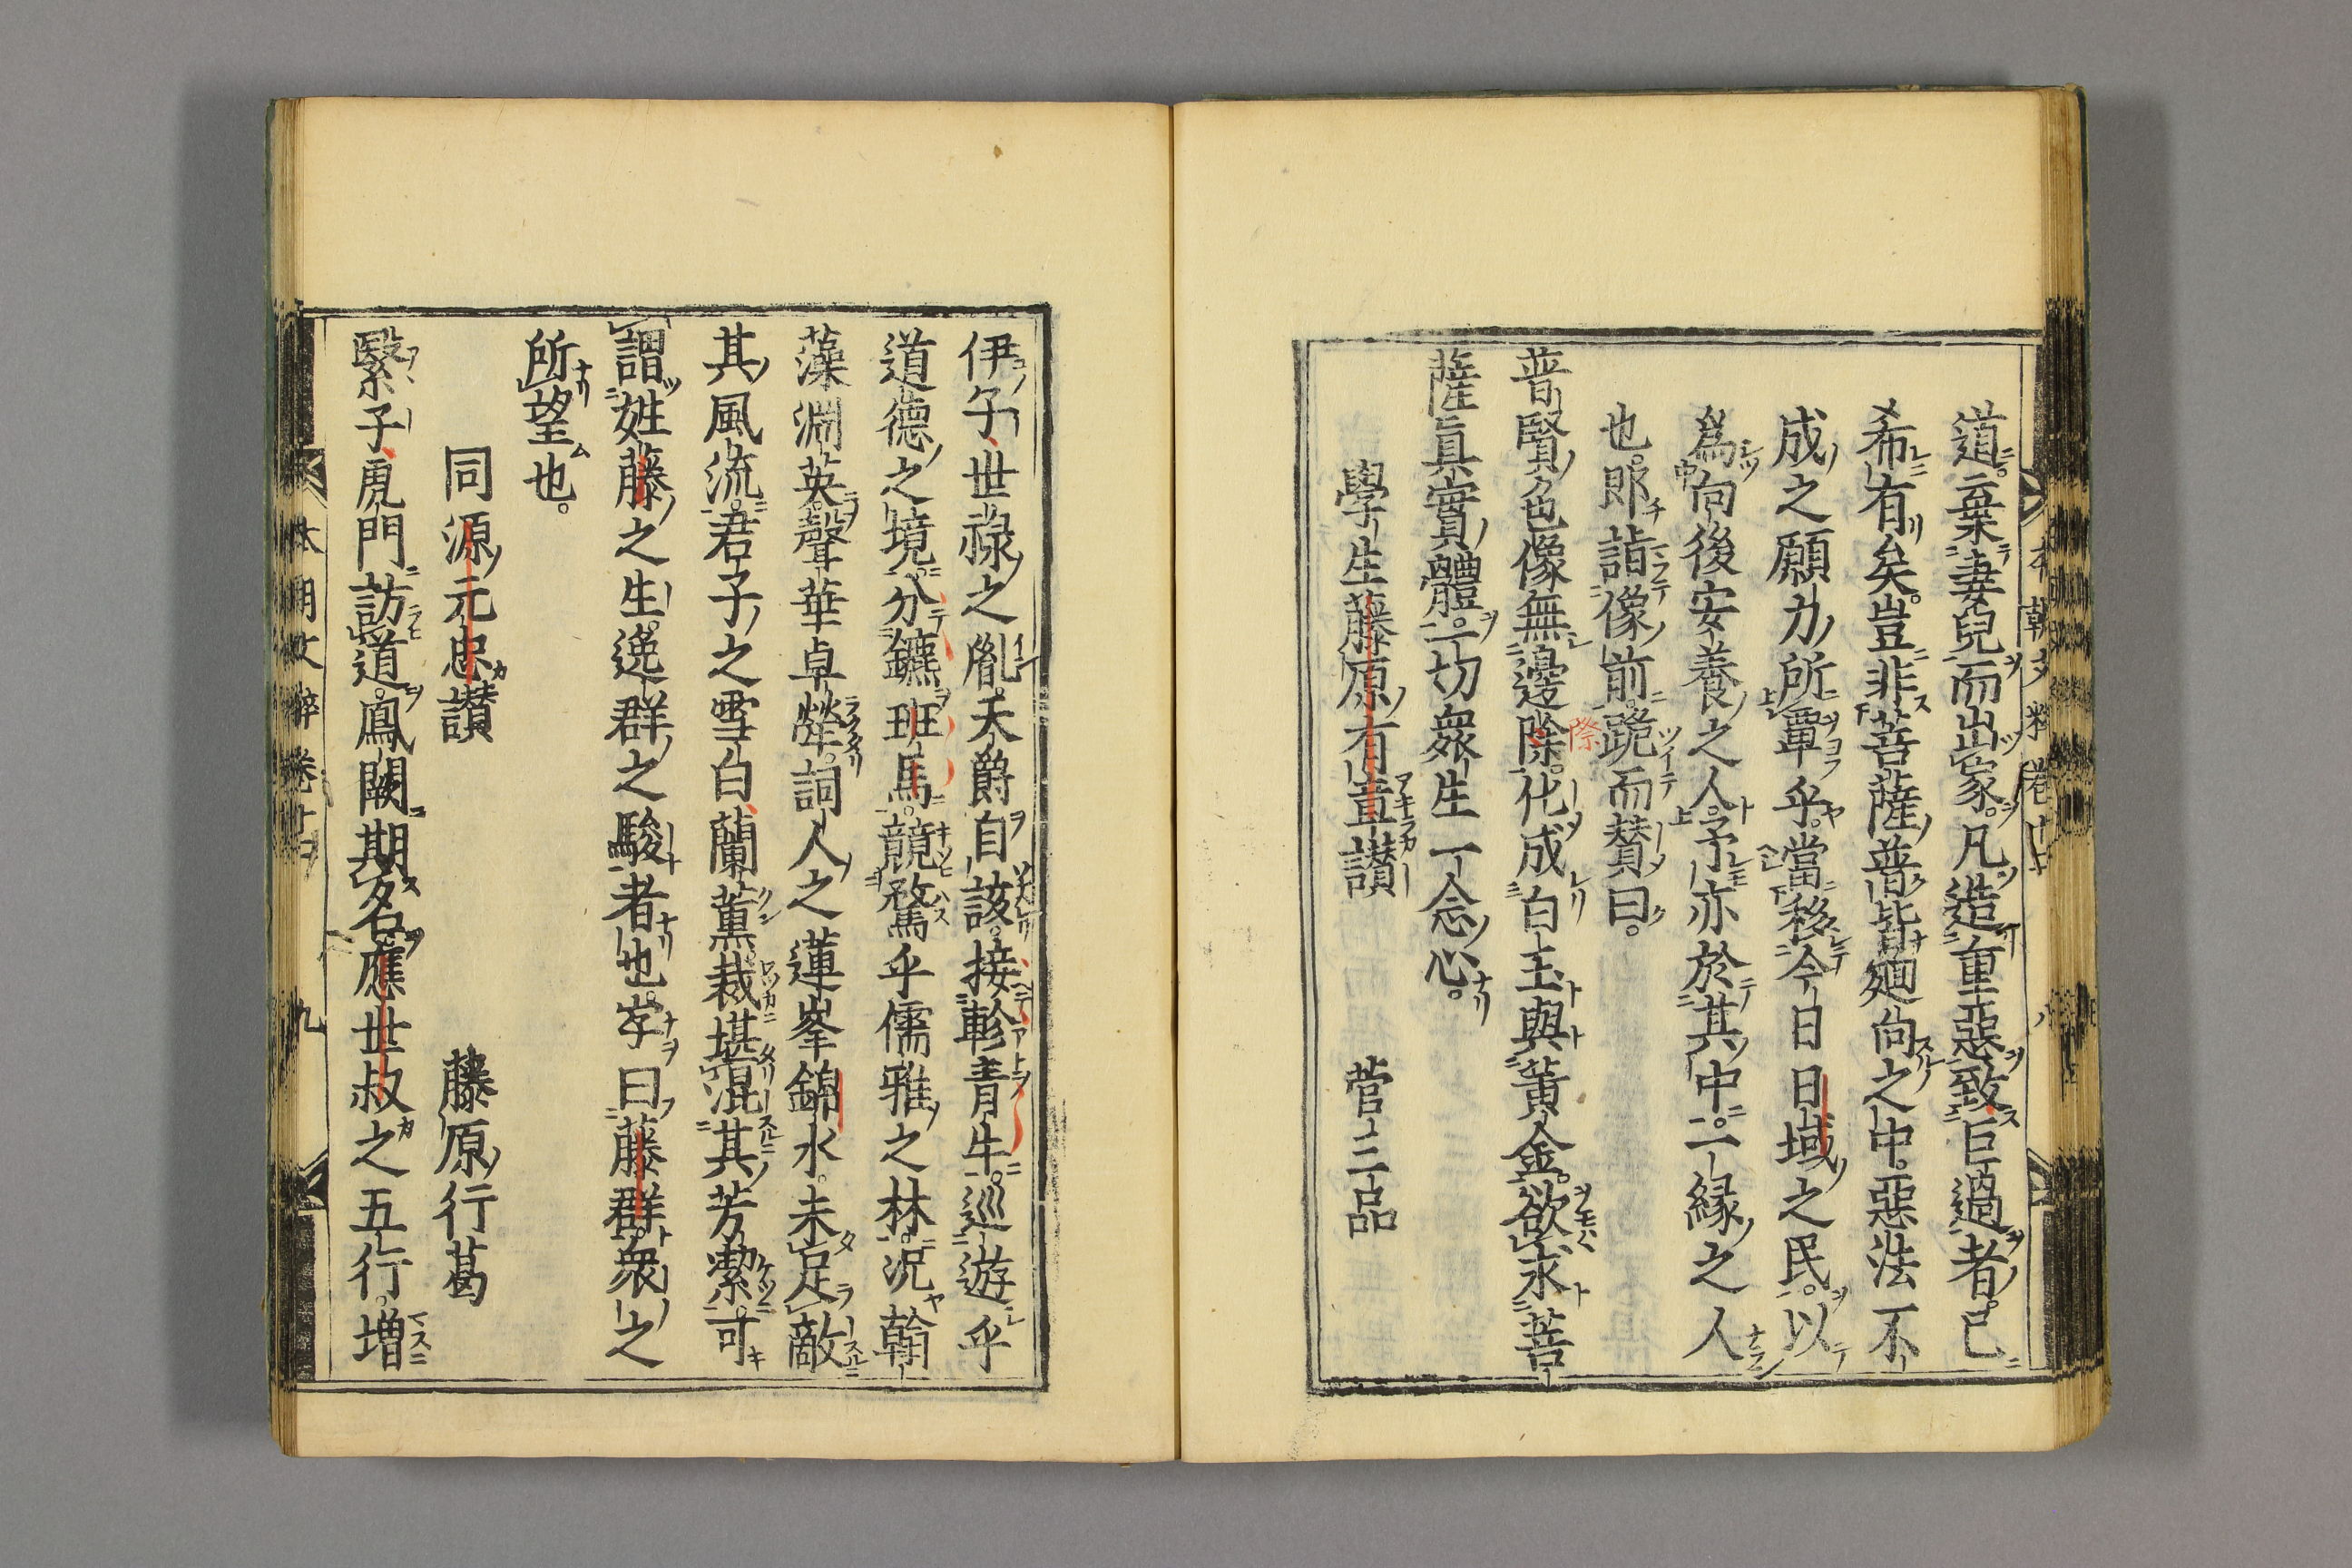 道棄妻兒而出家凡造重惡致巨過者已
希有矣豈非菩薩普皆廻向之中惡法不
成之願力所覃乎當移今日日域之民以
爲向後安養之人予亦於其中一緣之人
也郎詣像前跪而賛曰
普賢色像無邊除化成白玉與黃金欲求菩
際
薩眞實體一切衆生一念心
學生藤原有章讃　菅三品
伊予世祿之胤天爵自該接軫青牛巡遊乎
道德之境分鑣班馬競騖乎儒雅之林況翰
藻淵英聲華卓犖詞人之蓮峯錦水未足敵
其風流君子之雪白蘭薰裁堪混其芳潔可
謂姓藤之生逸群之駿者也字曰藤群衆之
所望也
同源元忠讃　藤原行葛
繄子虎門訪道鳳闕期名應世叔之五行增
本朝文粹卷十二　九